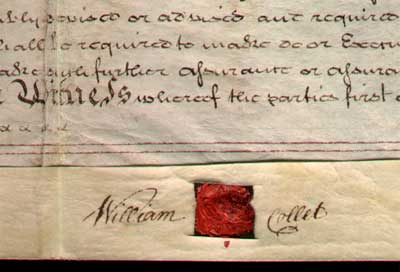 or advised and required
shall be required to make do or Execu
such further assurance or assura
Witness whereof the parties first
William Collet